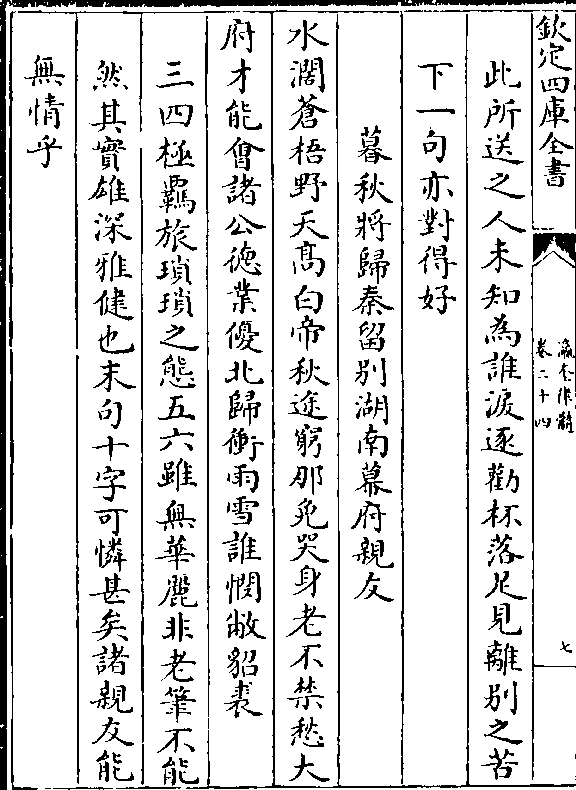 欽定四庫全書
瀛奎律髓
卷二十四
七
此所送之人未知為誰淚逐勸杯落足見離別之苦
下一句亦對得好
暮秋將歸秦留别湖南幕府親友
水濶蒼梧野天髙白帝秋途窮那免哭身老不禁愁大
府才能㑹諸公徳業優北歸衝雨雪誰憫敝貂裘
三四極羈旅瑣瑣之態五六雖無華麗非老筆不能
然其實雄深雅健也末句十字可憐甚矣諸親友能
無情乎